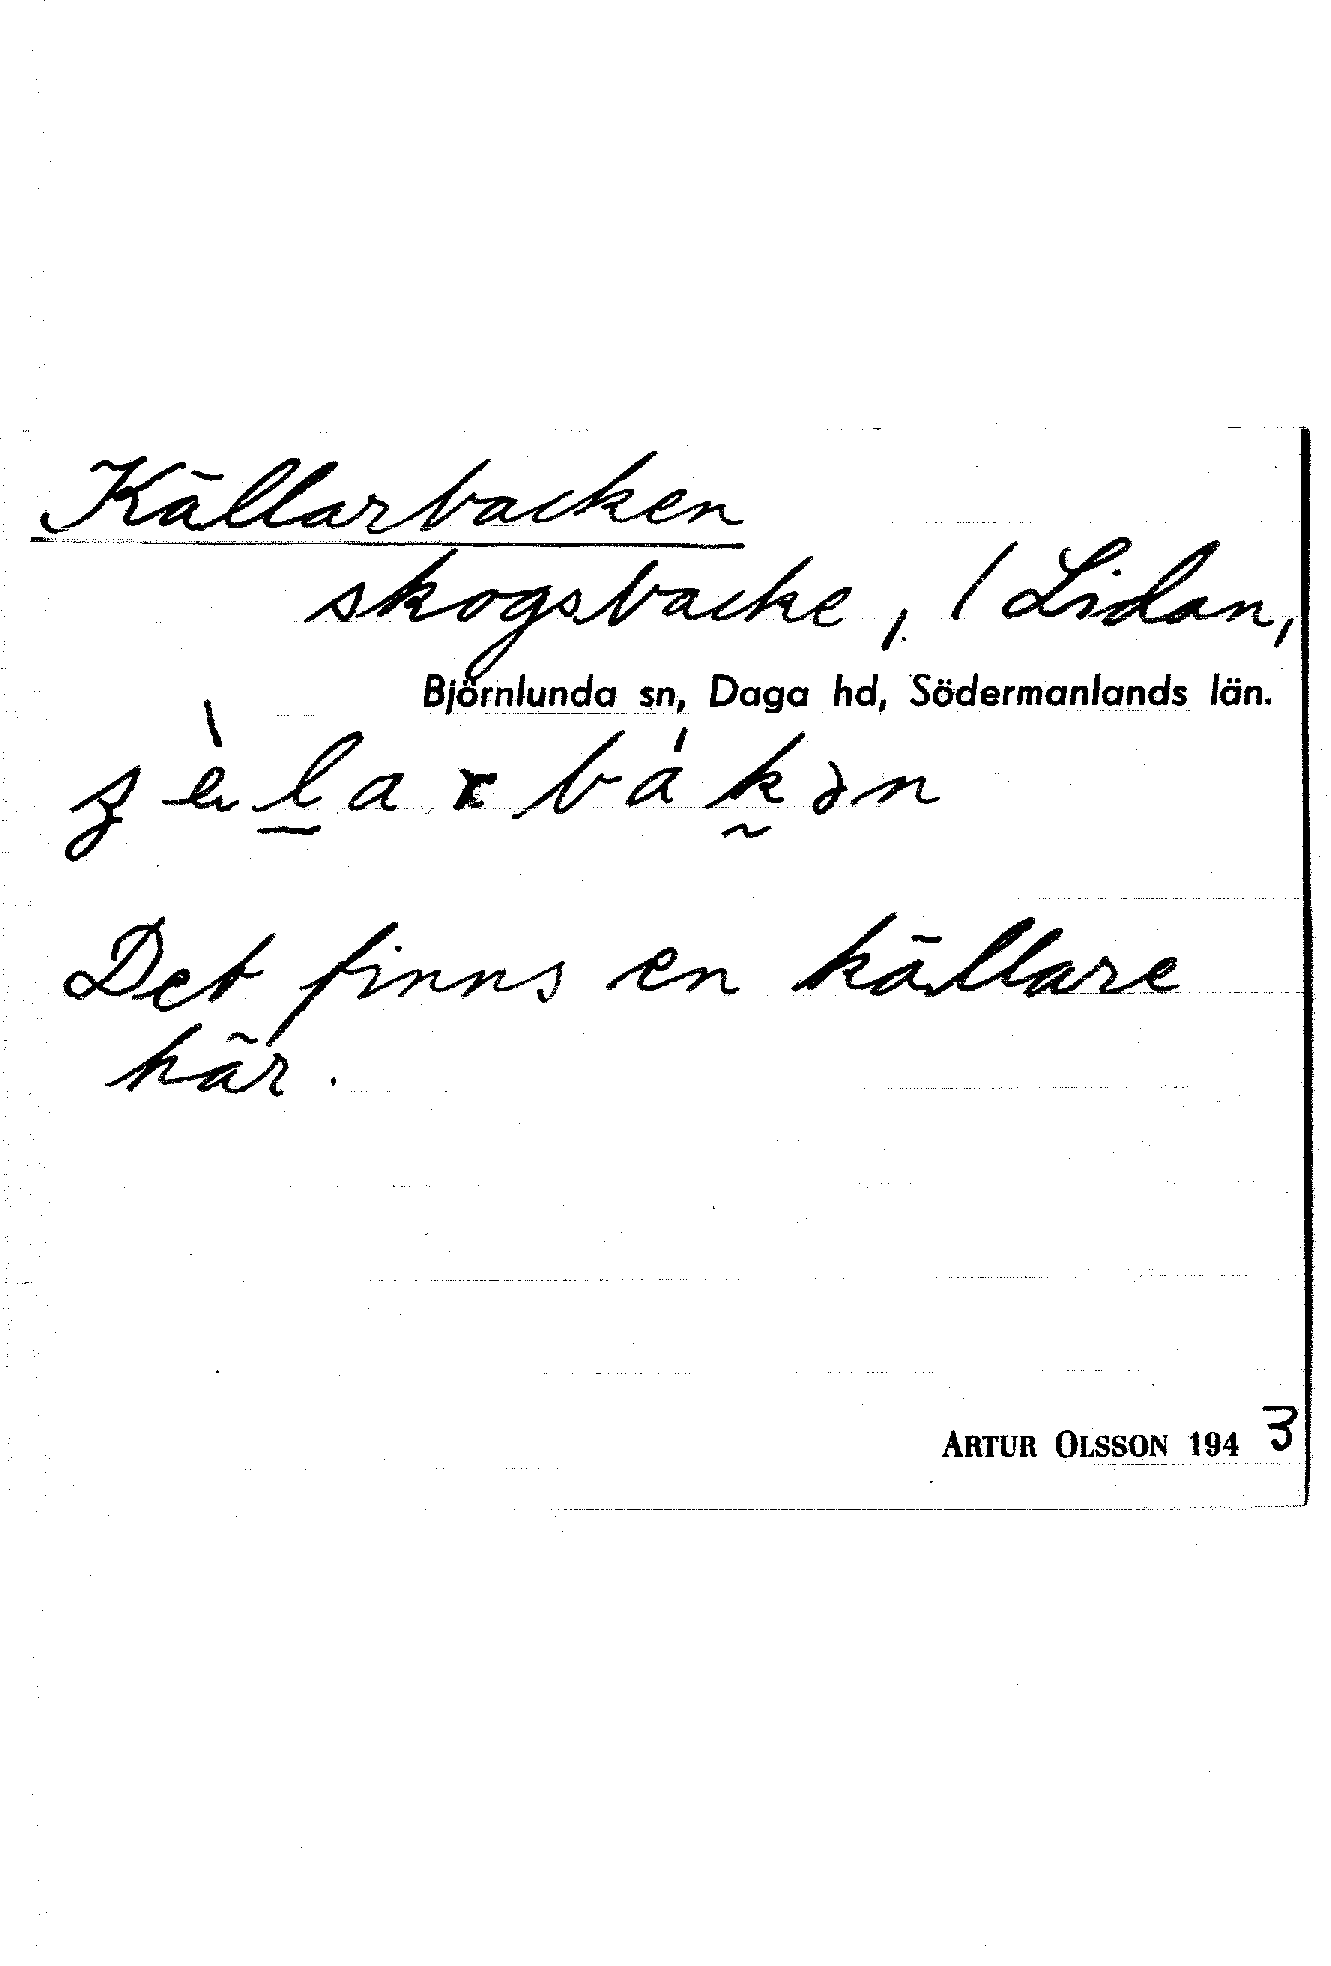 Källarbacken
skogsbacke, / Lidan,
Björnlunda sn, Daga hd, Södermanlands län.
Det finns en källare
här.
ARTUR OLSSON 1943